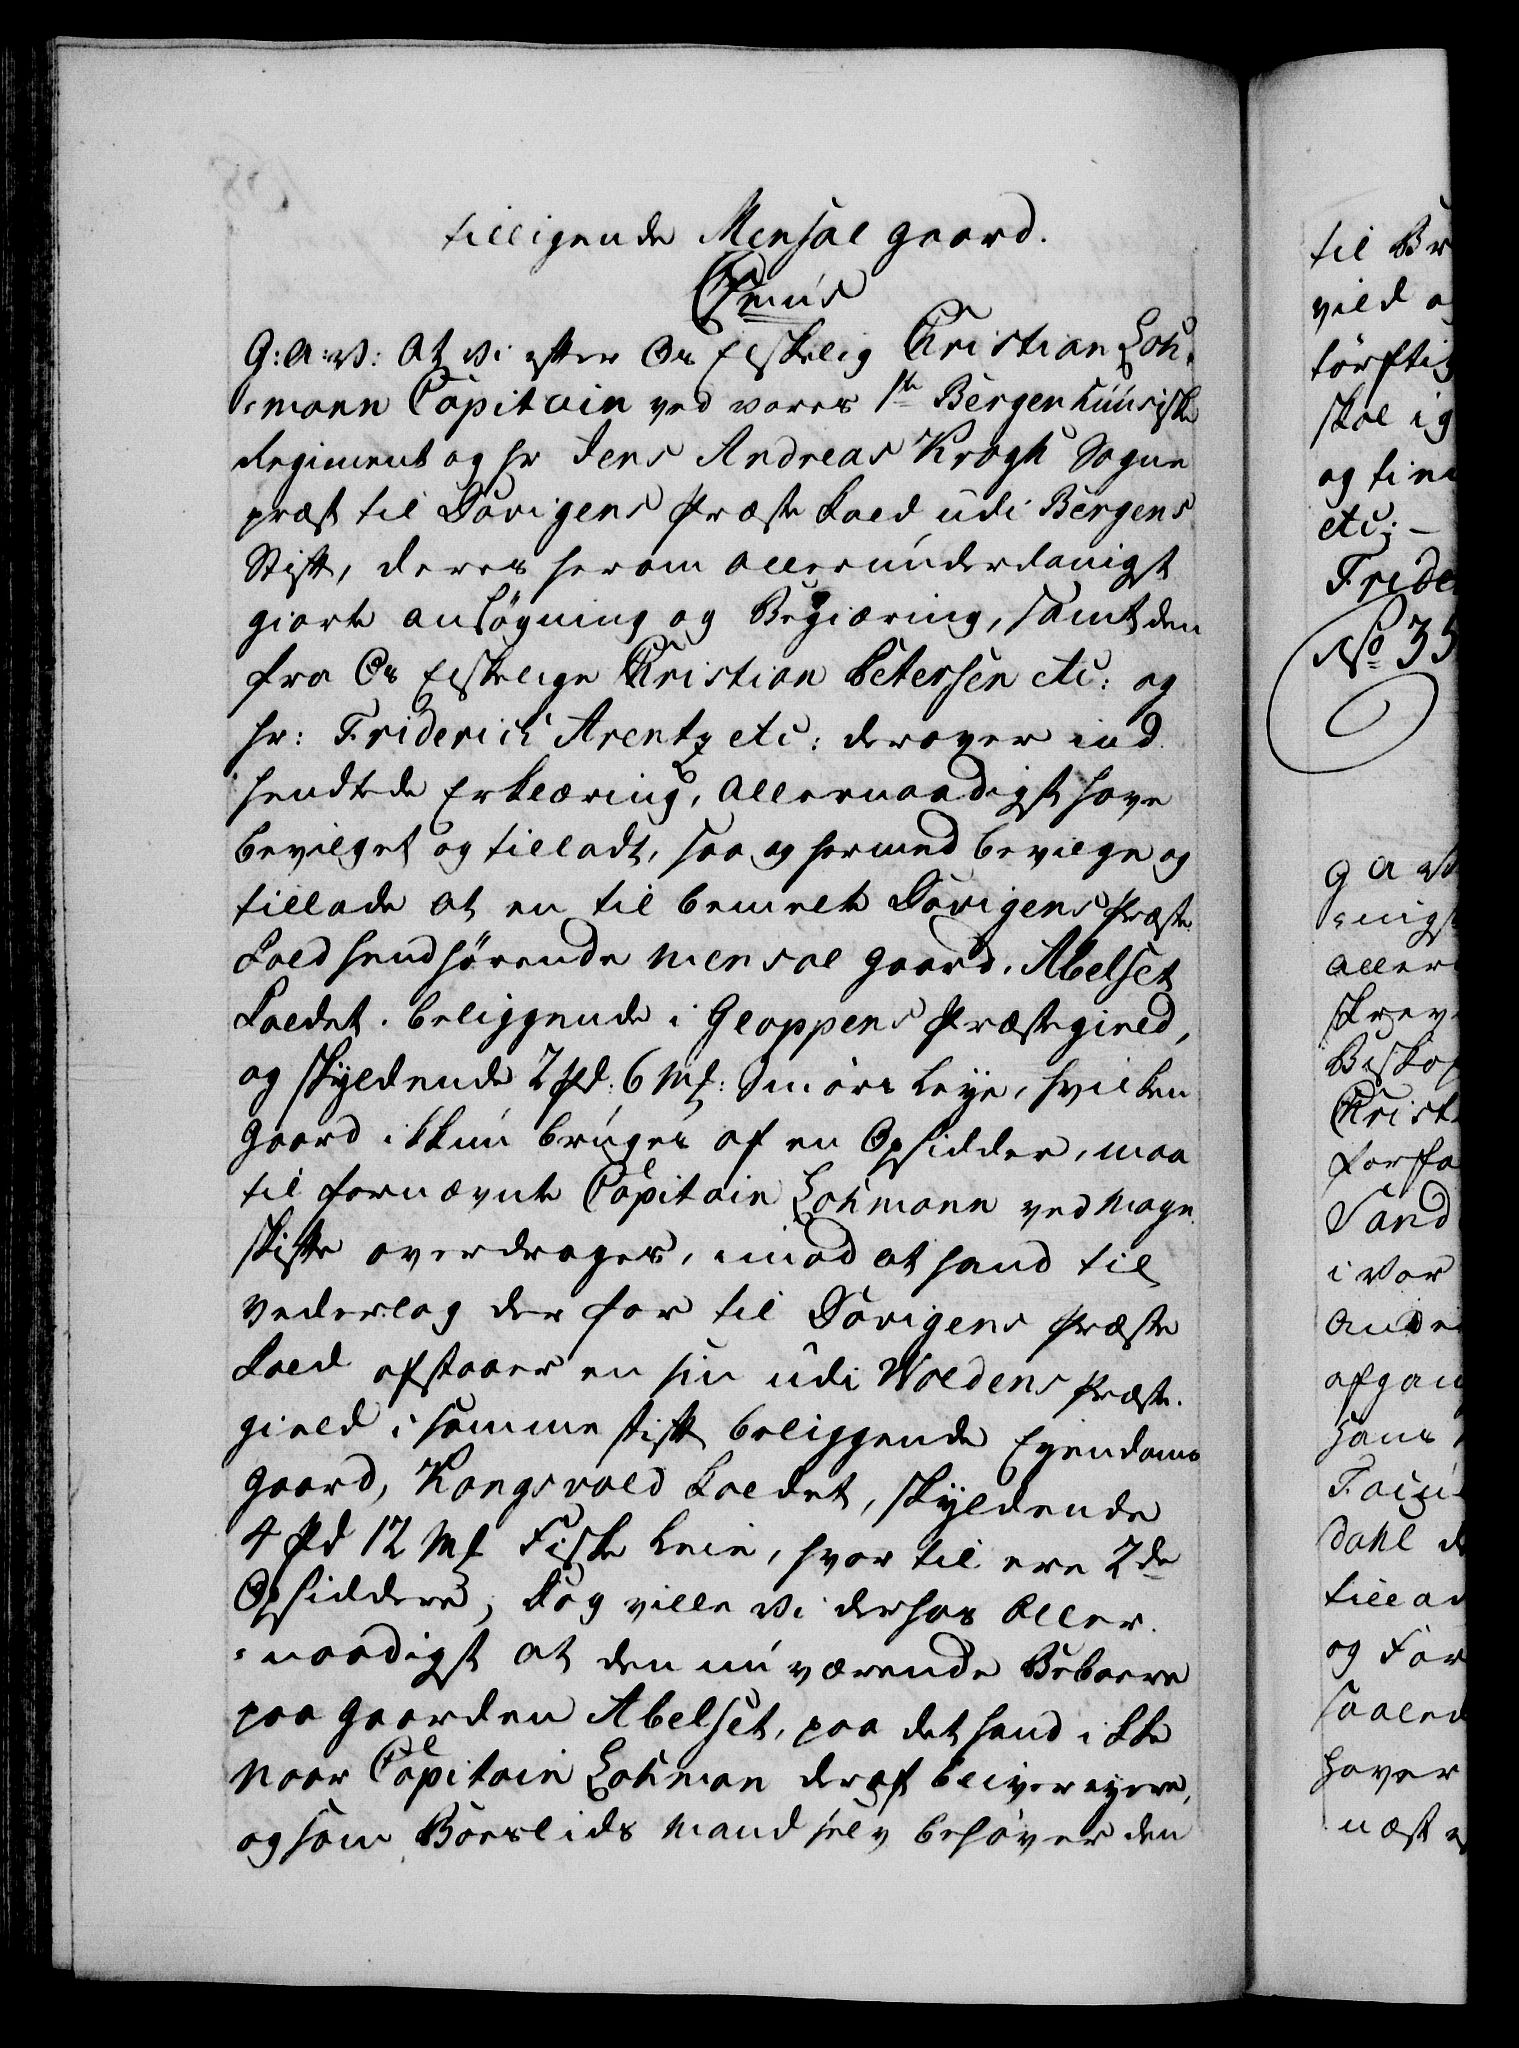 tilligende Mensal gaard.
Cfmus
G: a: V: At vi efter Os Elskelig Christian Loh-
=mann Capitain ved vores 1ste Bergenhuusiske
Regiment og hr Jens Andreas Krogh Sogne
præst til Davigens Præste Kald udi Bergens
Stift, deres herom allerunderdanigst
giorte ansøgning og Begiæring, samt den
fra Os Elskelige Christian Petersen etc: og
hr: Friderich Arentz etc: derover ind
sendtede Erklæring, allernaadigst have
bevilget og tilladt, saa og hermed bevilge og
tillade at en til bemelte Davigens Præste
Kald henhørende mensal gaard, Abelset
Kaldet. beliggende i Gloppens Præstegield,
og skyldende 2 Pd: 6 Mk: Smørs Leye, hvilken
gaard ikkun bruges af en Opsidder, maa
til fornævnte Capitain Lohmann ved mage
skifte overdrages, imod at hand til
vederlag der for til Davigens Præste
Kald afstaaer en sin udi Woldens Præste-
gield i samme stift beliggende Eyendoms
gaard, Kongsvold Kaldet, skyldende
4 Pd 12 Mk Fiske Leie, hvor til ere 2de
Opsiddere, Dog ville vi derhos Aller-
=naadigst at den nu værende Beboere
paa gaarden Abelset, paa det hand ikke
naar Capitain Lohman deraf bliver eyere,
og som Boeslids Mand selv behøver den
til Br
vild o
tørftig
skal ig
og
etc: –
Frede
No 35
G a V
=nigst
Aller
skrev
Biskop
Christ
forfa
Sand
i vor
afgan
hans
dahl d
tillad
og For
saaled
haver
næst